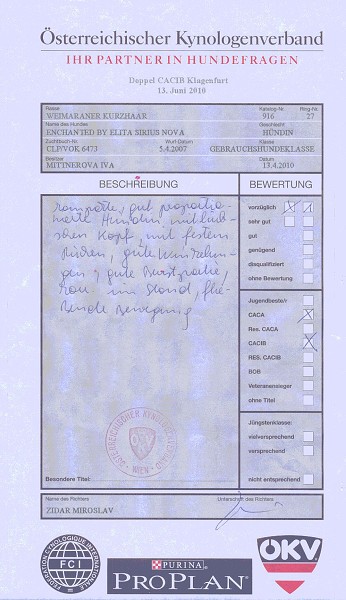 Österreichischer Kynologenverband
IHR PARTNER IN HUNDEFRAGEN
Doppel CACIB Klagenfurt
13. Juni 2010
Rasse Katalog-Nr. Ring-Nr.
WEIMARANER KURZHAAR 916 27
Name des Hundes Geschlecht
ENCHANTED BY ELITA SIRIUS NOVA HÜNDIN
Zuchtbuch-Nr. Wurf-Datum Klasse
CLP/VOK 6473 5.4.2007 GEBRAUCHSHUNDEKLASSE
Besitzer Datum
MITTNEROVA IVA 13.4.2010
BESCHREIBUNG
kompakte, gut proportio-
nierte Hündin mit hüb-
schen Kopf, mit festem
Rücken, gute Winkelun-
gen, gute Brustpartie,
im Stand, flie-
ßende Bewegung
ÖSTERREICHISCHER KYNOLOGENVERBAND
WIEN
ÖKV
Besondere Titel:
BEWERTUNG
vorzüglich X 1
sehr gut
gut
genügend
disqualifiziert
ohne Bewertung
Jugendbeste/r
CACA X
Res. CACA
CACIB X
RES. CACIB
BOB
Veteranensieger
ohne Titel
Jüngstenklasse:
vielversprechend
versprechend
nicht entsprechend
Name des Richters Unterschrift des Richters
ZIDAR MIROSLAV
FEDERATION CYNOLOGIQUE INTERNATIONALE
FCI
PURINA
PRO PLAN
ÖKV